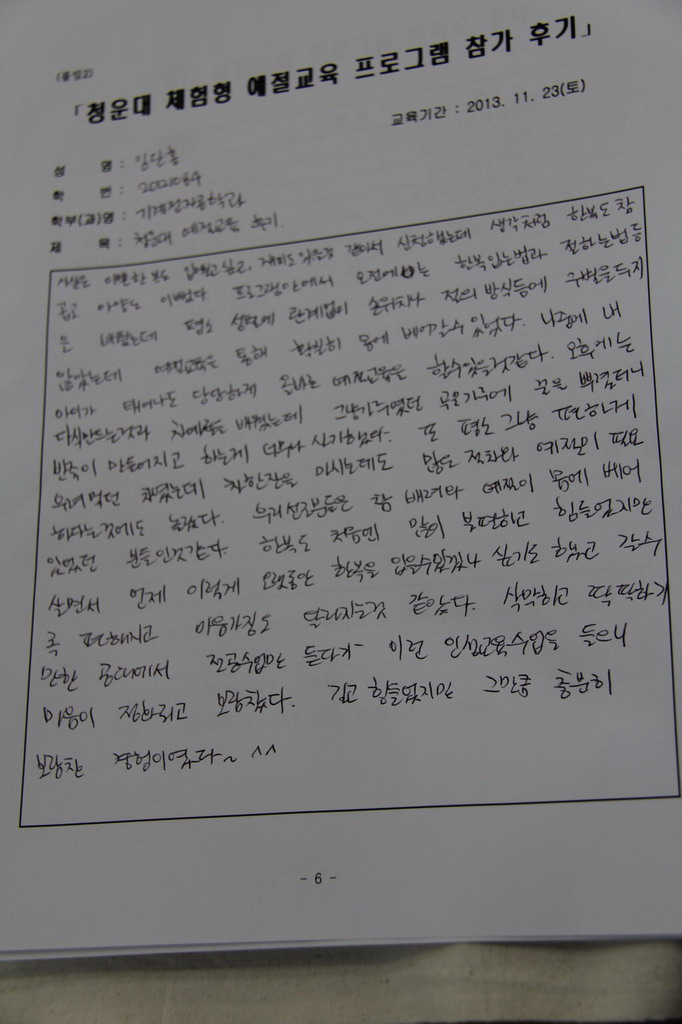 (붙임2)
「청운대 체험형 예절교육 프로그램 참가 후기」
교육기간 : 2013. 11. 23(토)
성 명 : 임단홍
학 번 :
학부(과)명 : 기계전자공학과
제 목 : 청운대 예절교육 후기.
사실은 예쁜 한복도 입어보고 싶고, 재미도 있을것 같아서 신청했는데 생각처럼 한복도 참
곱고 아양도 이뻤다. 프로그램안에서 오전에는 한복입는법과 절하는법등
을 배웠는데 평소 성별에 관계없이 손위치나 절의 방식등에 구별을두지
않았는데 예절교육을 통해 확실히 몸에 베어갈수 있었다. 나중에 내
아이가 태어나도 당당하게 올바른 예절교육을 할수있을것같다. 오후에는
다식만드는것과 차예절을 배웠는데 그냥가루였던 콩고물가루에 꿀을 뿌렸더니
반죽이 만들어지고 하는게 너무나 신기했다. 또 평소 그냥 편하게
우려먹던 차였는데 차한잔을 마시는데도 많은 절차와 예절이 필요
하다는것에도 놀랐다. 우리 선조분들은 참 배려와 예절이 몸에 베어
있었던 분들인것같다. 한복도 처음엔 많이 불편하고 힘들었지만
살면서 언제 이렇게 오랫동안 한복을 입을수있겠나 싶기도 하였고 갈수
록 편해지고 마음가짐도 달라지는것 같았다. 삭막하고 딱딱하기
만한 공대에서 전공수업만 듣다가 이런 인성교육수업을 들으니
마음이 정화되고 보람찼다. 길고 힘들었지만 그만큼 충분히
보람찬 경험이였다~ ^^
- 6 -